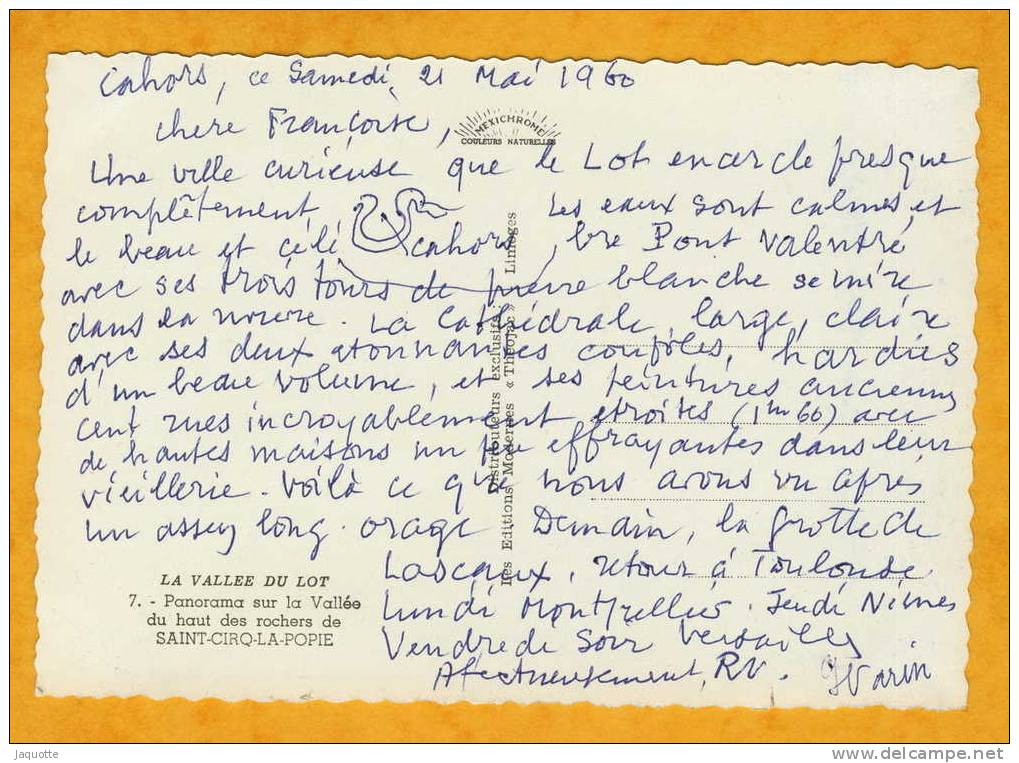 Cahors, ce Samedi, 21 Mai 1960
Chere Françoise,
MEXICHROME
COULEURS NATURELLES
Une ville curieuse que le Lot encercle presque
complètement, Les eaux sont calmes, et
le beau et célè Cahors, bre Pont Valentré
avec ses trois tours de pierre blanche se mire
dans la
La Cathédrale, large, claire
avec ses deux étonnantes coupoles, hardies
d'un beau volume, et ses peintures anciennes
cent rues incroyablement étroites (1m60) avec
de hautes maisons un peu effrayantes dans leur
vieillerie. Voilà ce que nous avons vu après
un assez long orage Demain, la grotte de
Lascaux, retour à Toulouse
Lundi Montpellier. Jeudi Nimes
Vendredi Soir Versailles.
Affectueusement, RV. Warin
Distributeurs exclusifs :
Les Editions Modernes « Théojac » Limoges
LA VALLEE DU LOT
7. - Panorama sur la Vallée
du haut des rochers de
SAINT-CIRQ-LA-POPIE
Jaquotte
www.delcampe.net